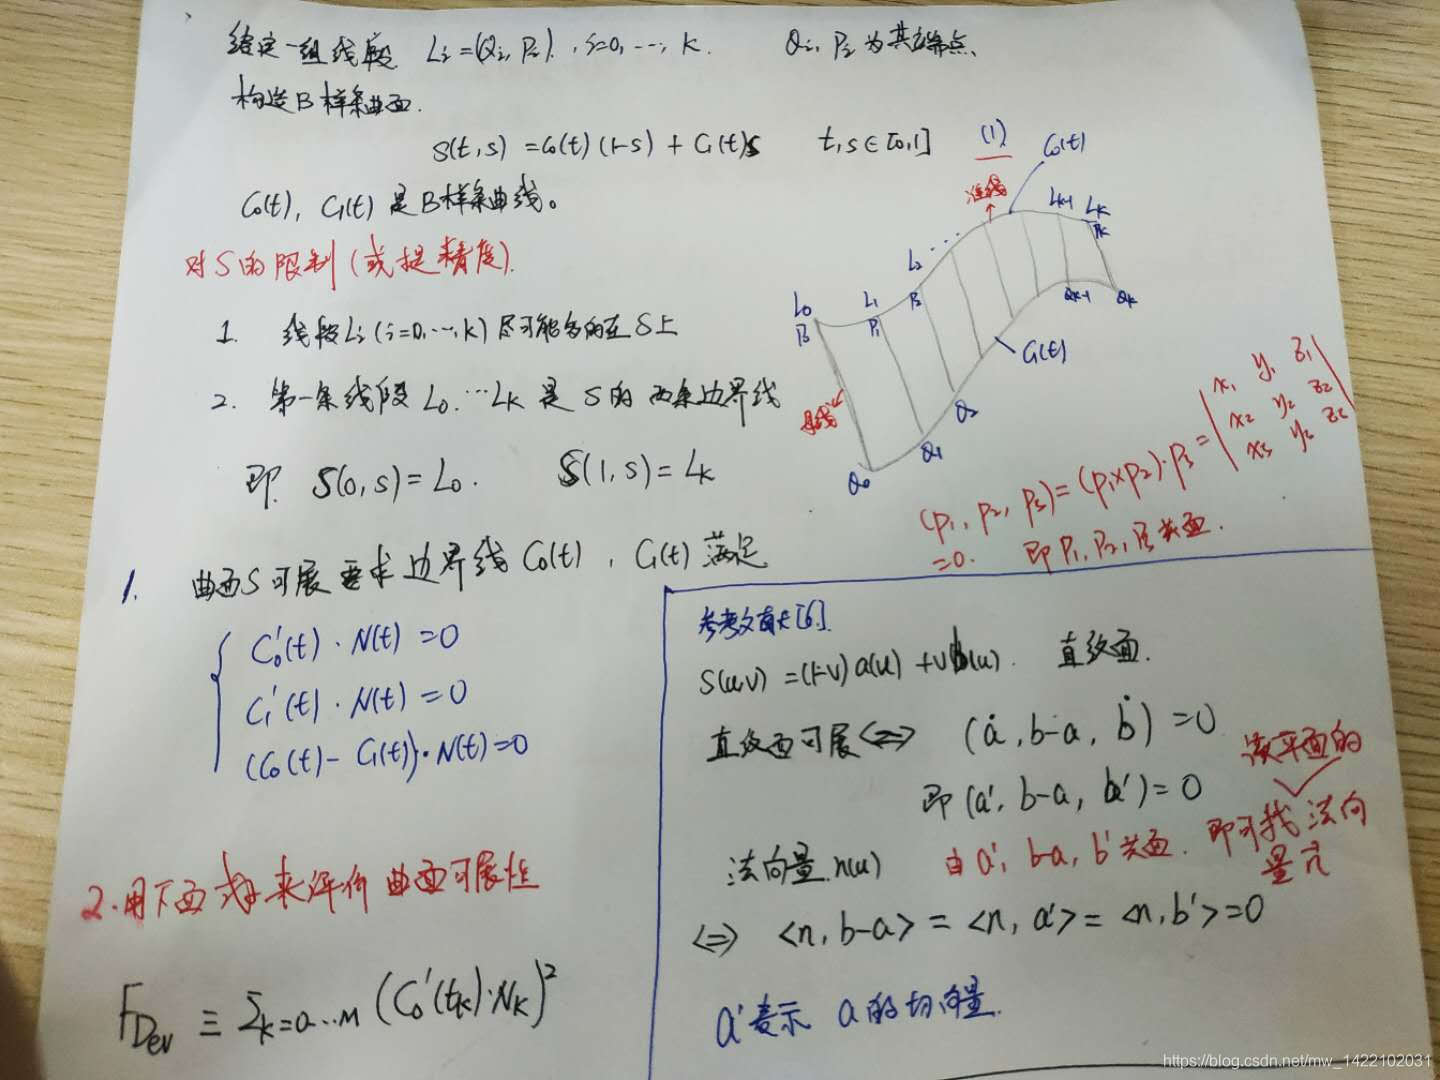 给定一组线段 Li=(Qi, Pi), i=0, ..., k. Qi, Pi 为其端点、
构造B样条曲面.
S(t,s) = C0(t)(1-s) + C1(t)s t,s∈[0,1] (1)
C0(t), C1(t) 是B样条曲线。
对S的限制(或提精度).
1. 线段Li(i=0,...,k)尽可能多的在S上
2. 第一条线段L0...Lk是S的两条边界线
即 S(0,s)=L0. S(1,s)=Lk
C0(t)
准线
L0
P0
L1
P1
L2
P2
...
Lk-1
Lk
Pk
Qk-1
Qk
C1(t)
母线
Q0
Q1
Q2
(p1, p2, p3)=(p1×p2)·p3=
x1 y1 z1
x2 y2 z2
x3 y3 z2
=0. 即P1, P2, P3共面.
1. 曲面S可展要求边界线C0(t), C1(t)满足
C0'(t)·N(t)=0
C1'(t)·N(t)=0
(C0(t)-C1(t))·N(t)=0
2.用下面式子来评价曲面可展性
FDev ≡ Σk=0...M (C0'(tk)·Nk)²
参考文献[6].
S(u,v)=(1-v)a(u)+vb(u). 直纹面.
直纹面可展<=> (ȧ, b-a, ḃ)=0
即(a', b-a, b')=0
法向量n(u) 由a', b-a, b'共面. 即可找法向
该平面的
量n
<=> <n, b-a> = <n, a'> = <n, b'>=0
a'表示 a的切向量.
https://blog.csdn.net/mw_1422102031